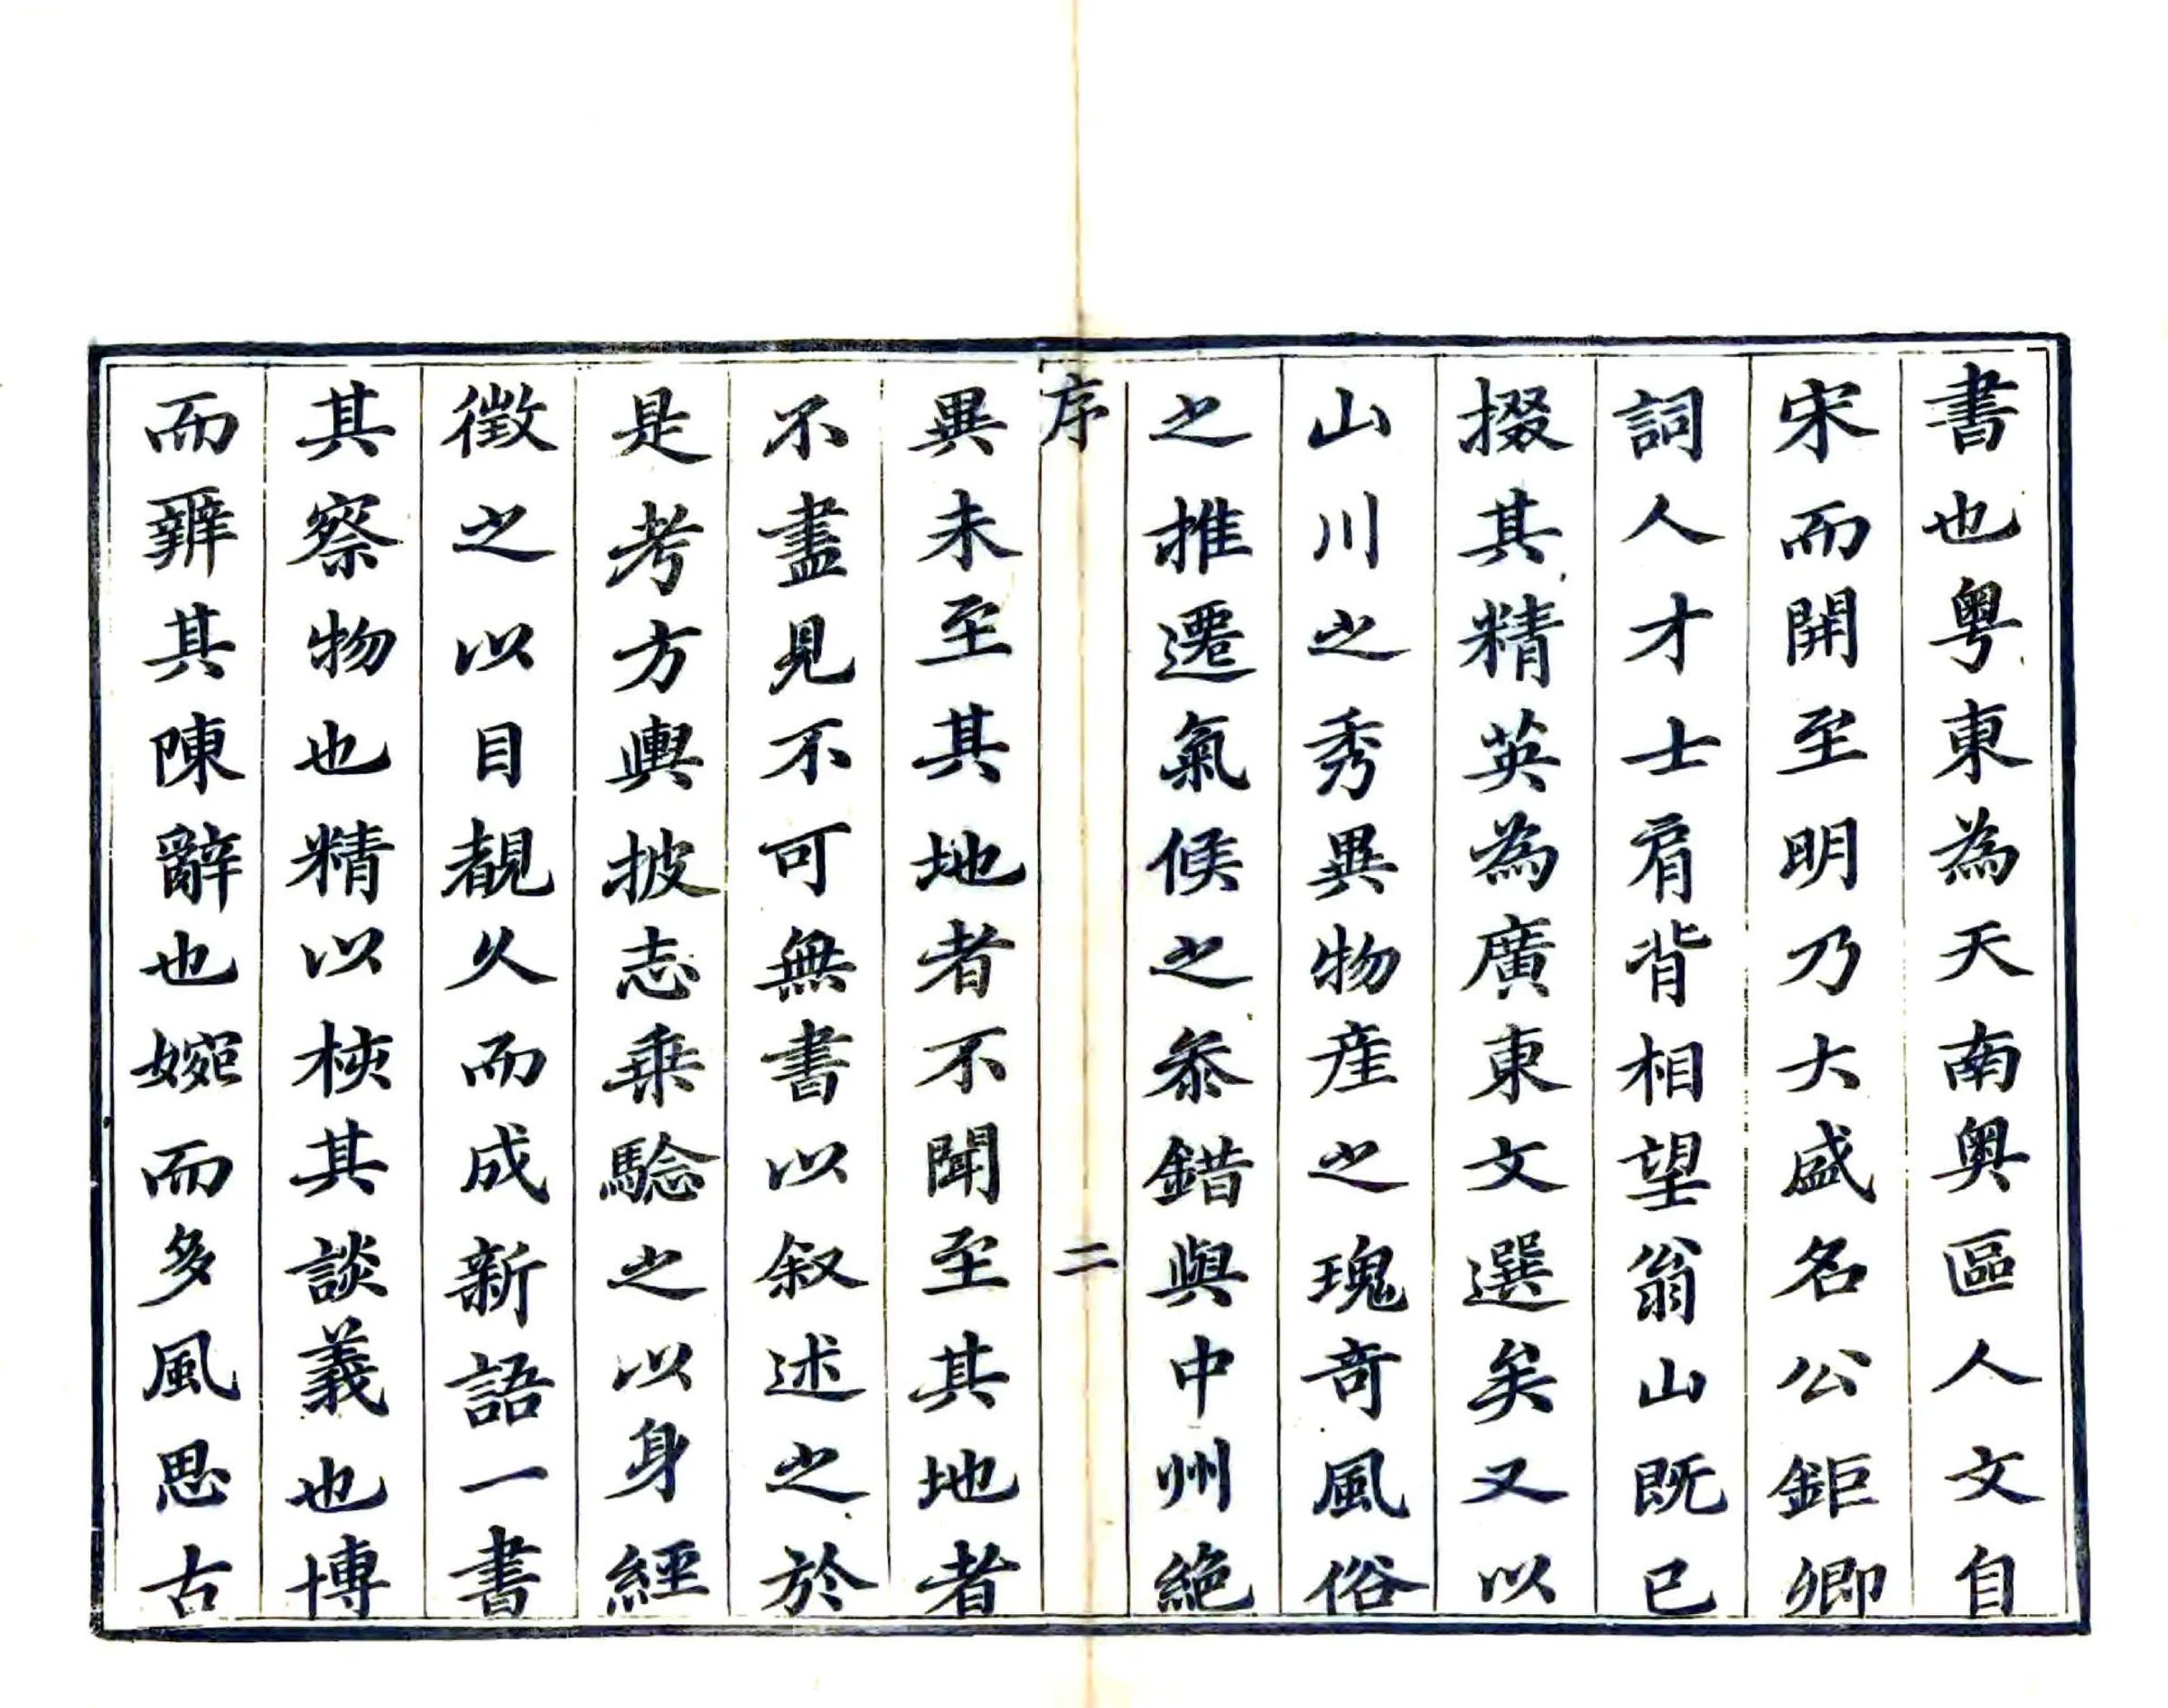 書也粤東為天南奥區人文自
宋而開至明乃大盛名公鉅卿
詞人才士肩背相望翁山既已
掇其精英為廣東文選矣又以
山川之秀異物産之瑰奇風俗
之推遷氣候之叅錯與中州絶
序 二
異未至其地者不聞至其地者
不盡見不可無書以叙述之於
是考方輿披志乗騐之以身經
徵之以目覩久而成新語一書
其察物也精以核其談義也博
而辨其陳辭也婉而多風思古